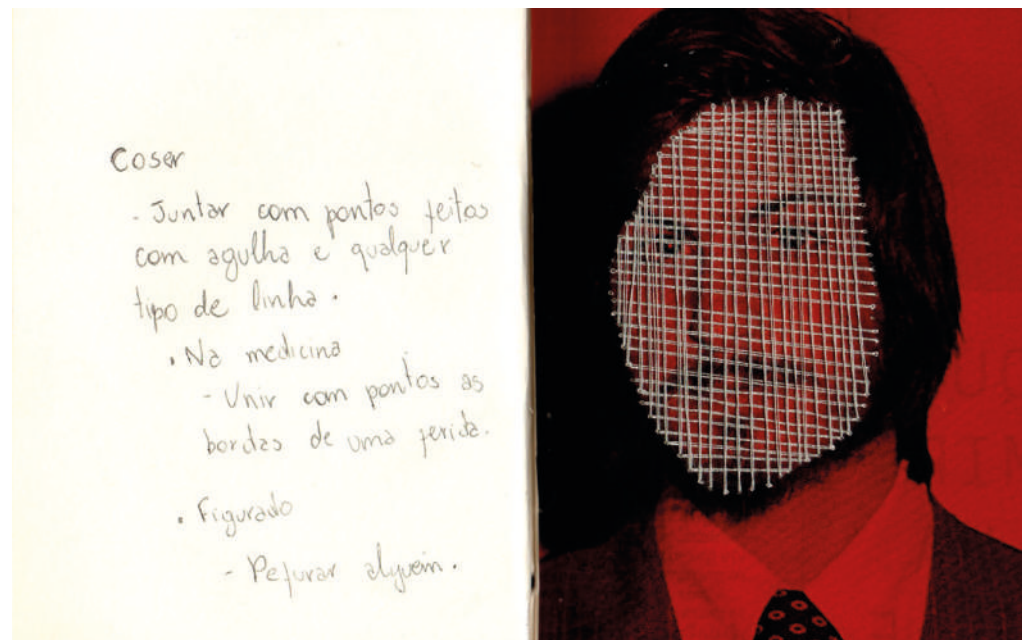 Coser
- Juntar com pontos feitos
com agulha e qualquer
tipo de linha.
• Na medicina
- Unir com pontos as
bordas de uma ferida.
• Figurado
- Pefurar alguém.